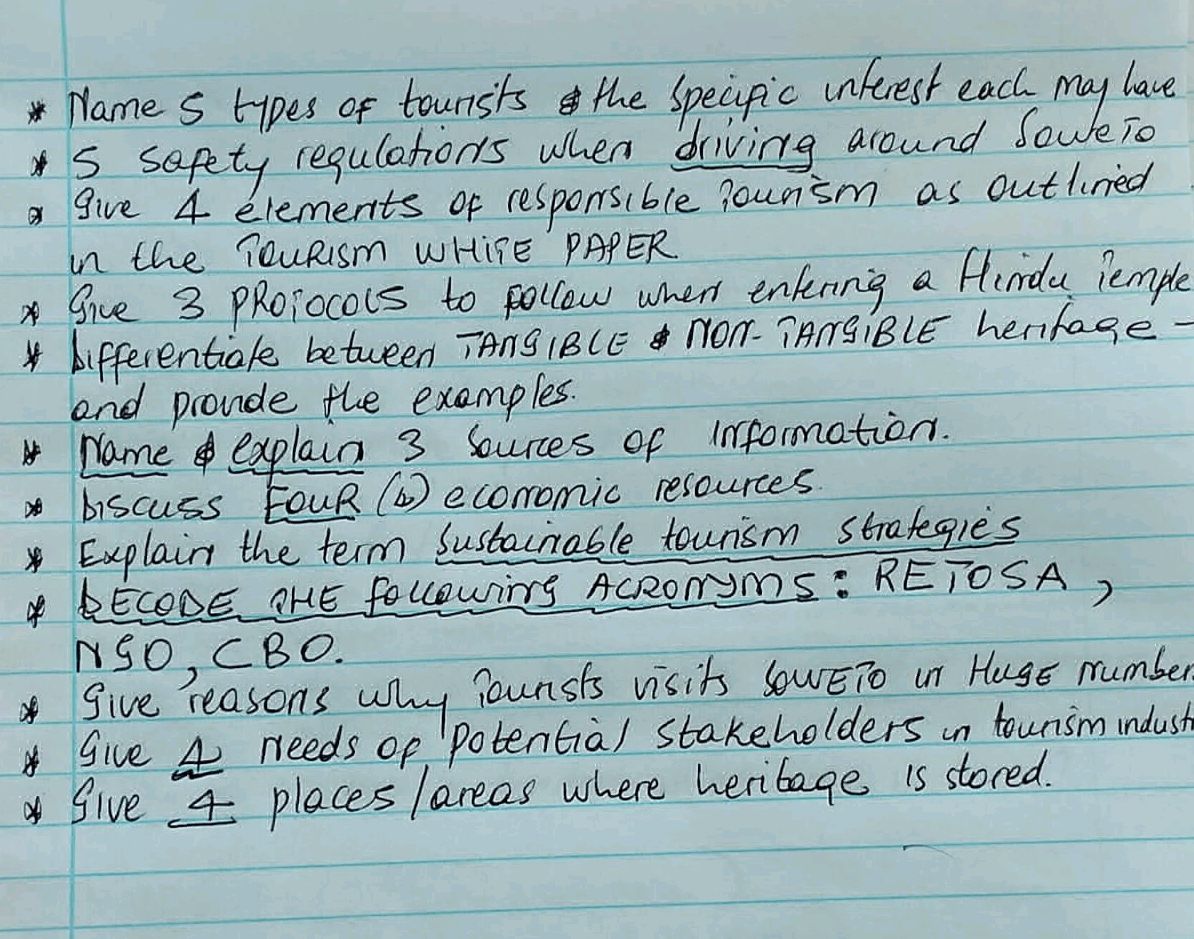 * Name 5 types of tourists & the specific interest each may have
* 5 safety regulations when driving around Soweto
* Give 4 elements of responsible Tourism as outlined
in the TOURISM WHITE PAPER
* Give 3 PROTOCOLS to follow when entering a Hindu Temple
* Differentiate between TANGIBLE & NON-TANGIBLE heritage -
and provide the examples.
* Name & explain 3 sources of information.
* Discuss FOUR (4) economic resources.
* Explain the term sustainable tourism strategies
* DECODE THE following ACRONYMS: RETOSA,
NGO, CBO.
* Give reasons why Tourists visits SOWETO in HUGE number
* Give 4 needs of potential stakeholders in tourism indust
* Give 4 places/areas where heritage is stored.